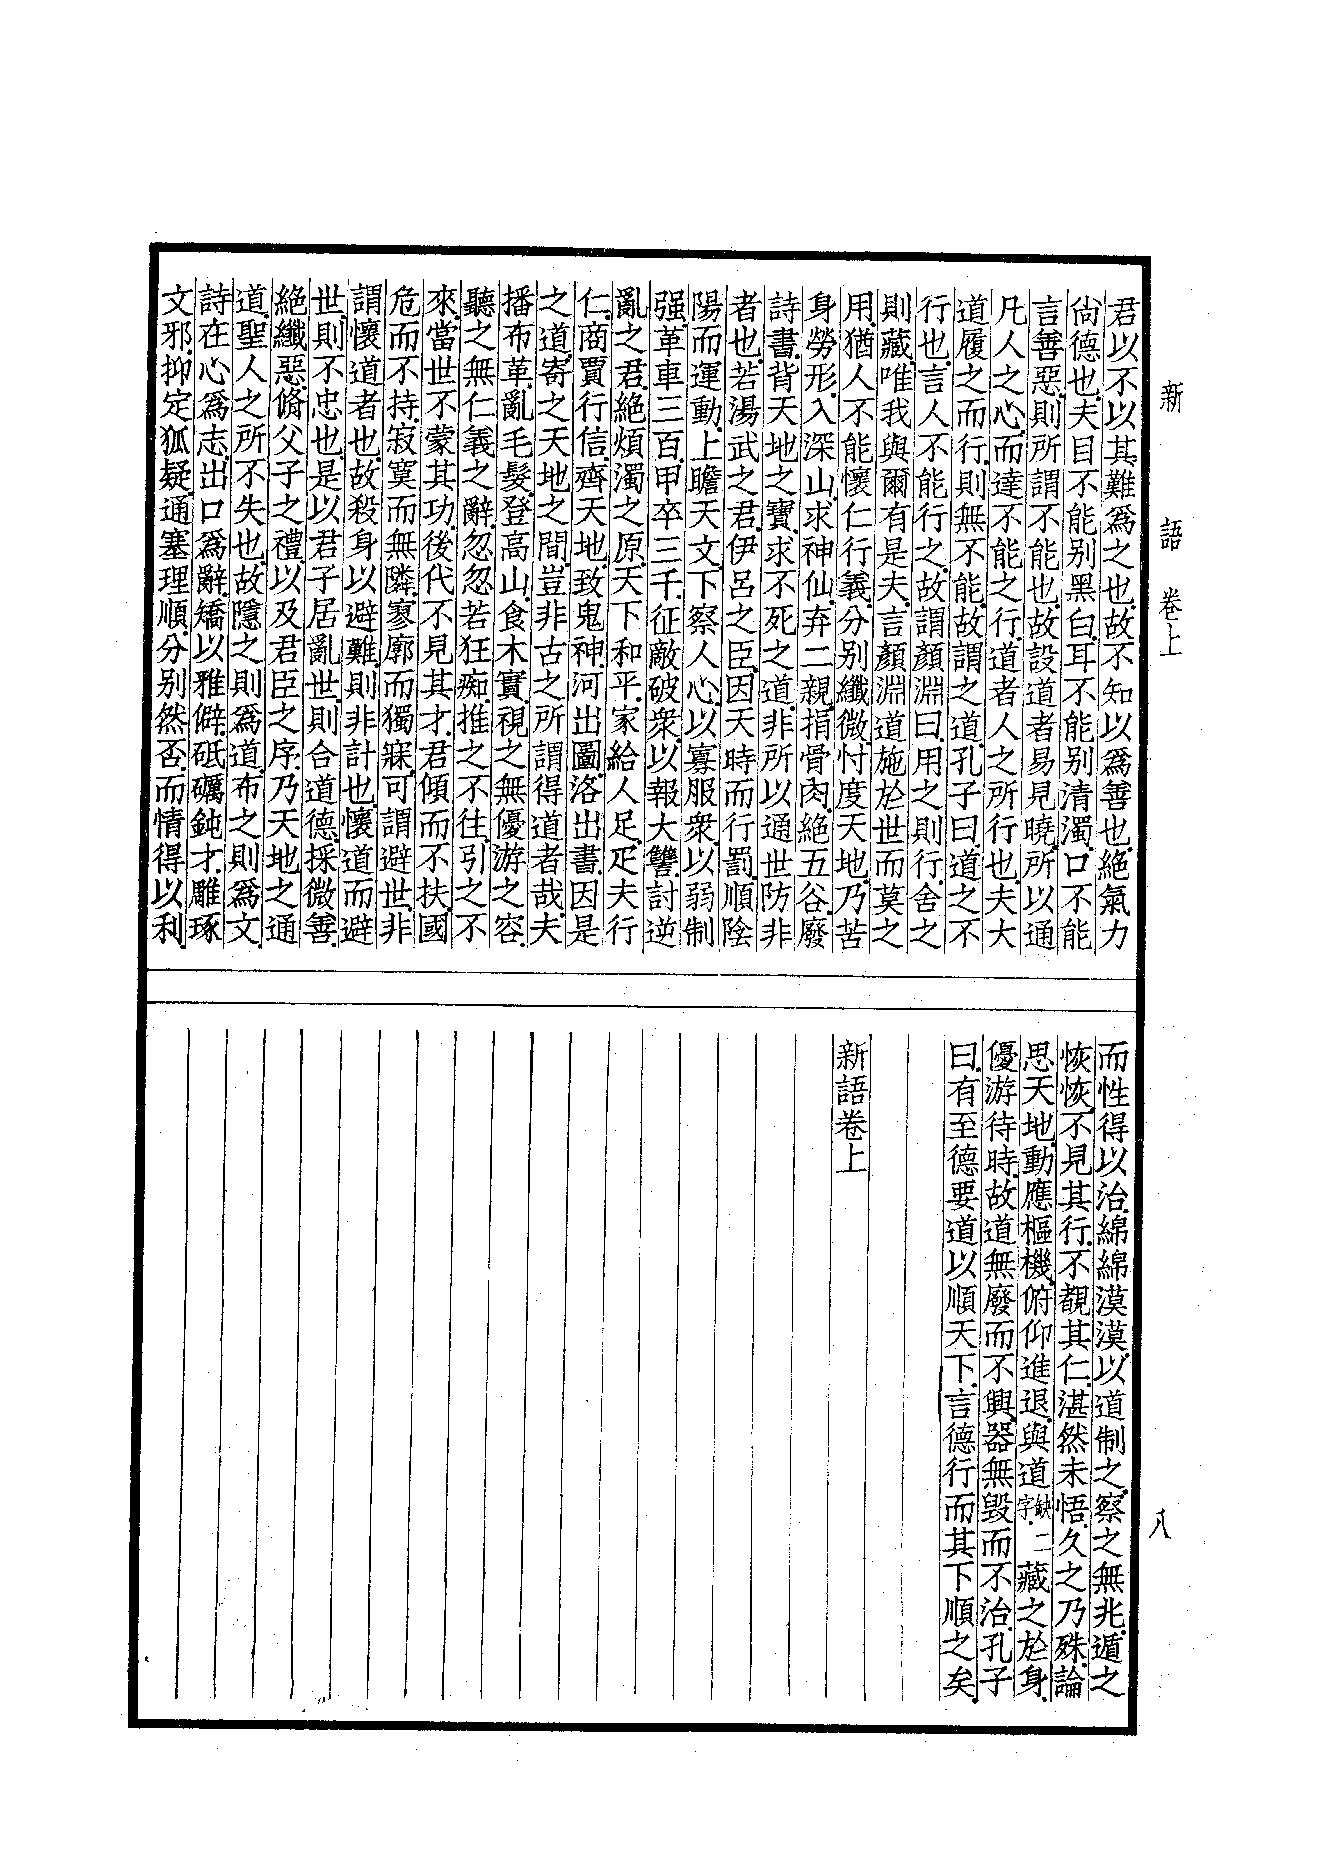 新語 卷上
君以不以其難爲之也.故不知以爲善也.絶氣力
尙德也.夫目不能别黑白.耳不能别清濁.口不能
言善惡.則所謂不能也.故設道者易見曉.所以通
凡人之心.而達不能之行.道者人之所行也.夫大
道履之而行.則無不能.故謂之道.孔子曰.道之不
行也.言人不能行之.故謂顏淵曰.用之則行.舍之
則藏.唯我與爾有是夫.言顏淵道施於世而莫之
用.猶人不能懷仁行義.分别纖微.忖度天地.乃苦
身勞形.入深山.求神仙.弃二親.捐骨肉.絶五谷.廢
詩書.背天地之寶.求不死之道.非所以通世防非
者也.若湯武之君.伊呂之臣.因天時而行罰.順陰
陽而運動.上瞻天文.下察人心.以寡服衆.以弱制
强.革車三百.甲卒三千.征敵破衆.以報大讐.討逆
亂之君.絶煩濁之原.天下和平.家給人足.疋夫行
仁.商賈行信.齊天地.致鬼神.河出圖.洛出書.因是
之道.寄之天地之間.豈非古之所謂得道者哉.夫
播布革.亂毛髮.登高山.食木實.視之無優游之容.
聽之無仁義之辭.忽忽若狂痴.推之不往.引之不
來.當世不蒙其功.後代不見其才.君傾而不扶.國
危而不持.寂寞而無隣.寥廓而獨寐.可謂避世.非
謂懷道者也.故殺身以避難.則非計也.懷道而避
世.則不忠也.是以君子居亂世.則合道德.採微善.
絶纖惡.脩父子之禮.以及君臣之序.乃天地之通
道.聖人之所不失也.故隱之則爲道.布之則爲文.
詩在心爲志.出口爲辭.矯以雅僻.砥礪鈍才.雕琢
文邪.抑定狐疑.通塞理順.分别然否.而情得以利.
而性得以治.綿綿漠漠.以道制之.察之無兆.遁之
恢恢.不見其行.不覩其仁.湛然未悟.久之乃殊.論
思天地.動應樞機.俯仰進退.與道缺二字.藏之於身.
優游待時.故道無廢而不興.器無毀而不治.孔子
曰.有至德要道以順天下.言德行而其下順之矣.
新語卷上
八